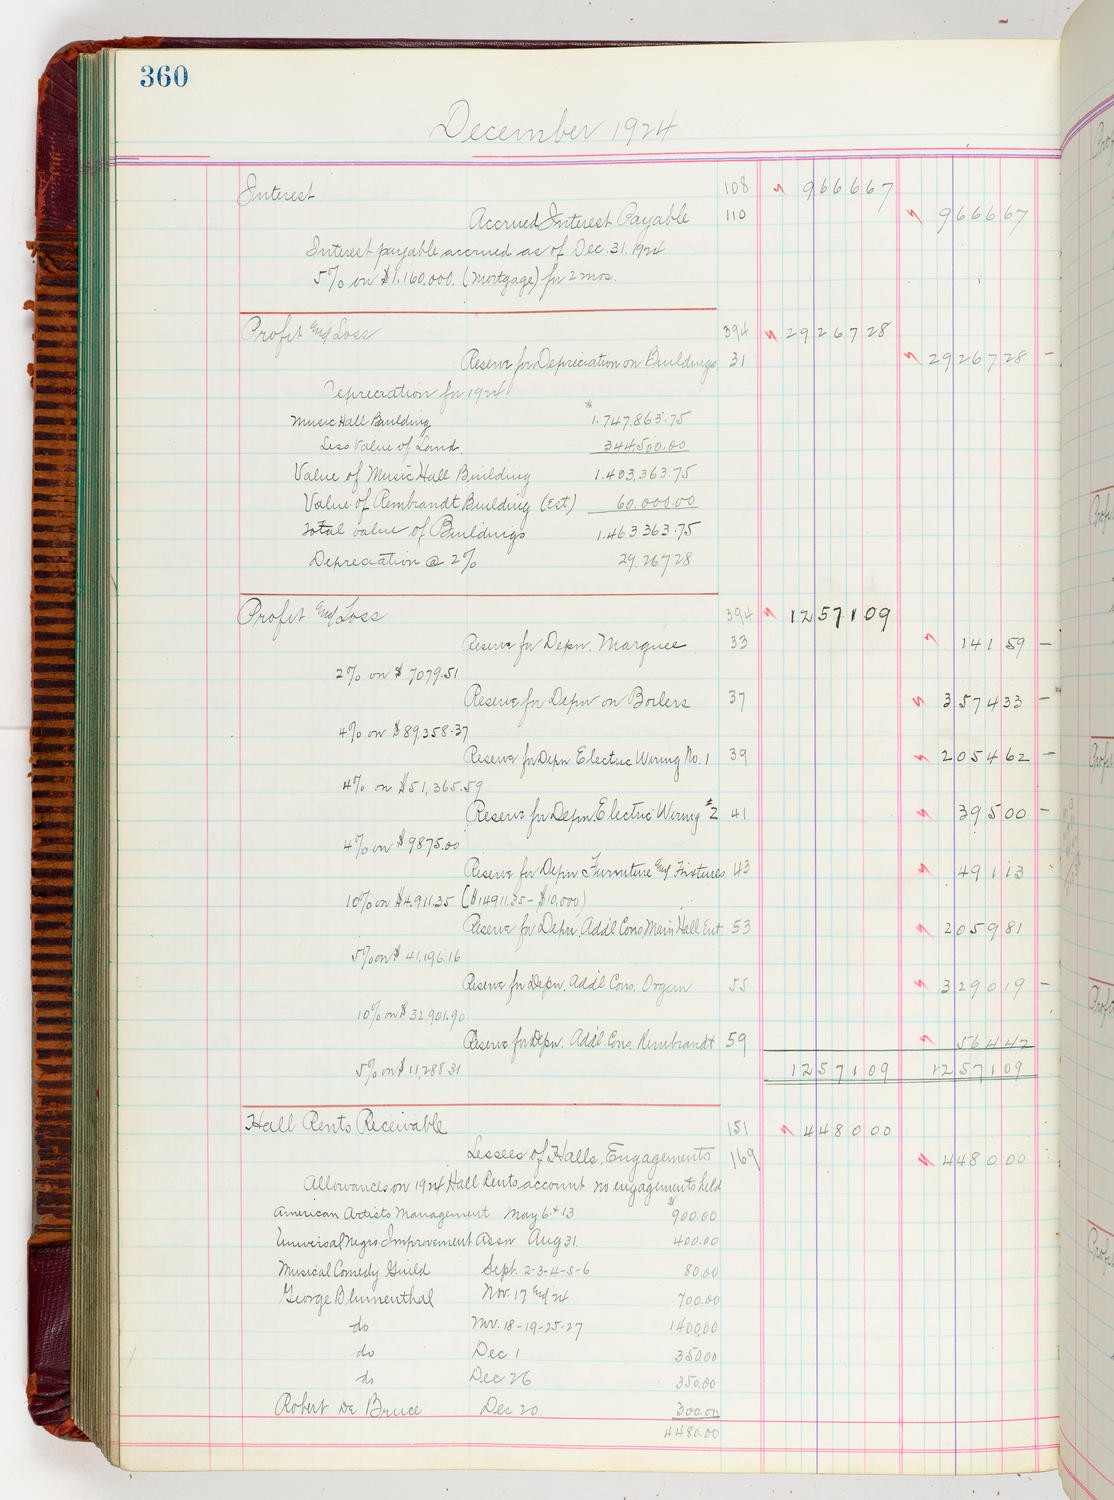 360
December 1924
Interest 108 9 666 67
Accrued Interest Payable 110 9 666 67
Interest payable accrued as of Dec. 31. 1924
5% on $1.160.000. (Mortgage) for 2 mos.
Profit and Loss 394 29 267 28
Reserve for Depreciation on Buildings 31 29 267 28 -
Depreciation for 1924
Music Hall Building 1.747.863.75
Less Value of Land. 344,500.00
Value of Music Hall Building 1.403,363.75
Value of Rembrandt Building (Est) 60.000.00
Total value of Buildings 1.463363.75
Depreciation @ 2% 29.26728
Profit and Loss 394 12 571 09
Reserve for Depn. Marquee 33 141 59 -
2% on $ 7079.51
Reserve for Depn on Boilers 37 3 574 33 -
4% on $89,358.37
Reserve for Depn Electric Wiring No. 1 39 2 054 62 -
4% on $51,365.59
Reserve for Depn. Electric Wiring #2 41 395 00 -
4% on $9875.00
Reserve for Depn Furniture and Fixtures 43 491 13
10% on $4,911.35 ($14911.35 - $10,000)
Reserve for Depn. Add'l Cons Main Hall Ent. 53 2 059 81
5% on $ 41,196.16
Reserve for Depn. Add'l Cons. Organ 55 3 290 19 -
10% on $ 32,901.90
Reserve for Depn. Add'l. Cons. Rembrandt 59 564 42
12 571 09 12 571 09
5% on $11,288.31
Hall Rents Receivable 151 4 480 00
Lessees of Halls. Engagements 169 4 480 00
Allowances on 1924 Hall Rents account no engagements held
American Artists Management May 6 + 13 $900.00
Universal Negro Improvement Assn Aug 31. 400.00
Musical Comedy Guild Sept. 2-3-4-5-6 80.00
George Blumenthal Nov. 17 and 24 700.00
do Nov. 18-19-25-27 1400.00
do Dec 1 350.00
do Dec 26 350.00
Robert De Bruce Dec 20. 300.00
4480.00